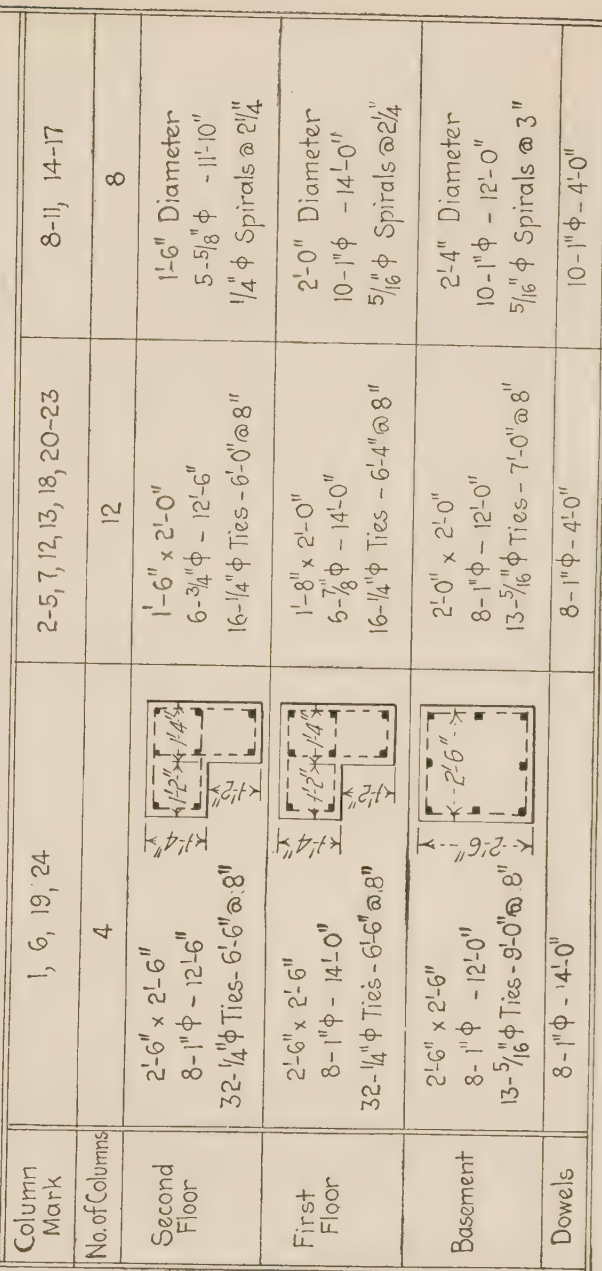 Column
Mark
1, 6, 19, 24
2-5, 7, 12, 13, 18, 20-23
8-11, 14-17
No. of Columns
4
12
8
Second
Floor
2'-6" x 2'-6"
8-1"ϕ - 12'-6"
32-1/4"ϕ Ties- 6'-6"@ 8"
1'-4"
1'-2"
1'-4"
1'-2"
1'-6" x 2'-0"
6-3/4"ϕ - 12'-6"
16-1/4"ϕ Ties - 6'-0"@ 8"
1'-6" Diameter
5-5/8"ϕ - 11'-10"
1/4"ϕ Spirals @ 2 1/4"
First
Floor
2'-6" x 2'-6"
8-1"ϕ - 14'-0"
32-1/4"ϕ Ties- 6'-6"@ 8"
1'-4"
1'-2"
1'-4"
1'-2"
1'-8" x 2'-0"
6-7/8"ϕ - 14'-0"
16-1/4"ϕ Ties - 6'-4"@ 8"
2'-0" Diameter
10-1"ϕ - 14'-0"
5/16"ϕ Spirals @ 2 1/4"
Basement
2'-6" x 2'-6"
8-1"ϕ - 12'-0"
13-5/16"ϕ Ties - 9'-0"@ 8"
2'-6"
2'-6"
2'-0" x 2'-0"
8-1"ϕ - 12'-0"
13-5/16"ϕ Ties - 7'-0"@ 8"
2'-4" Diameter
10-1"ϕ - 12'-0"
5/16"ϕ Spirals @ 3"
Dowels
8-1"ϕ - 4'-0"
8-1"ϕ - 4'-0"
10-1"ϕ - 4'-0"